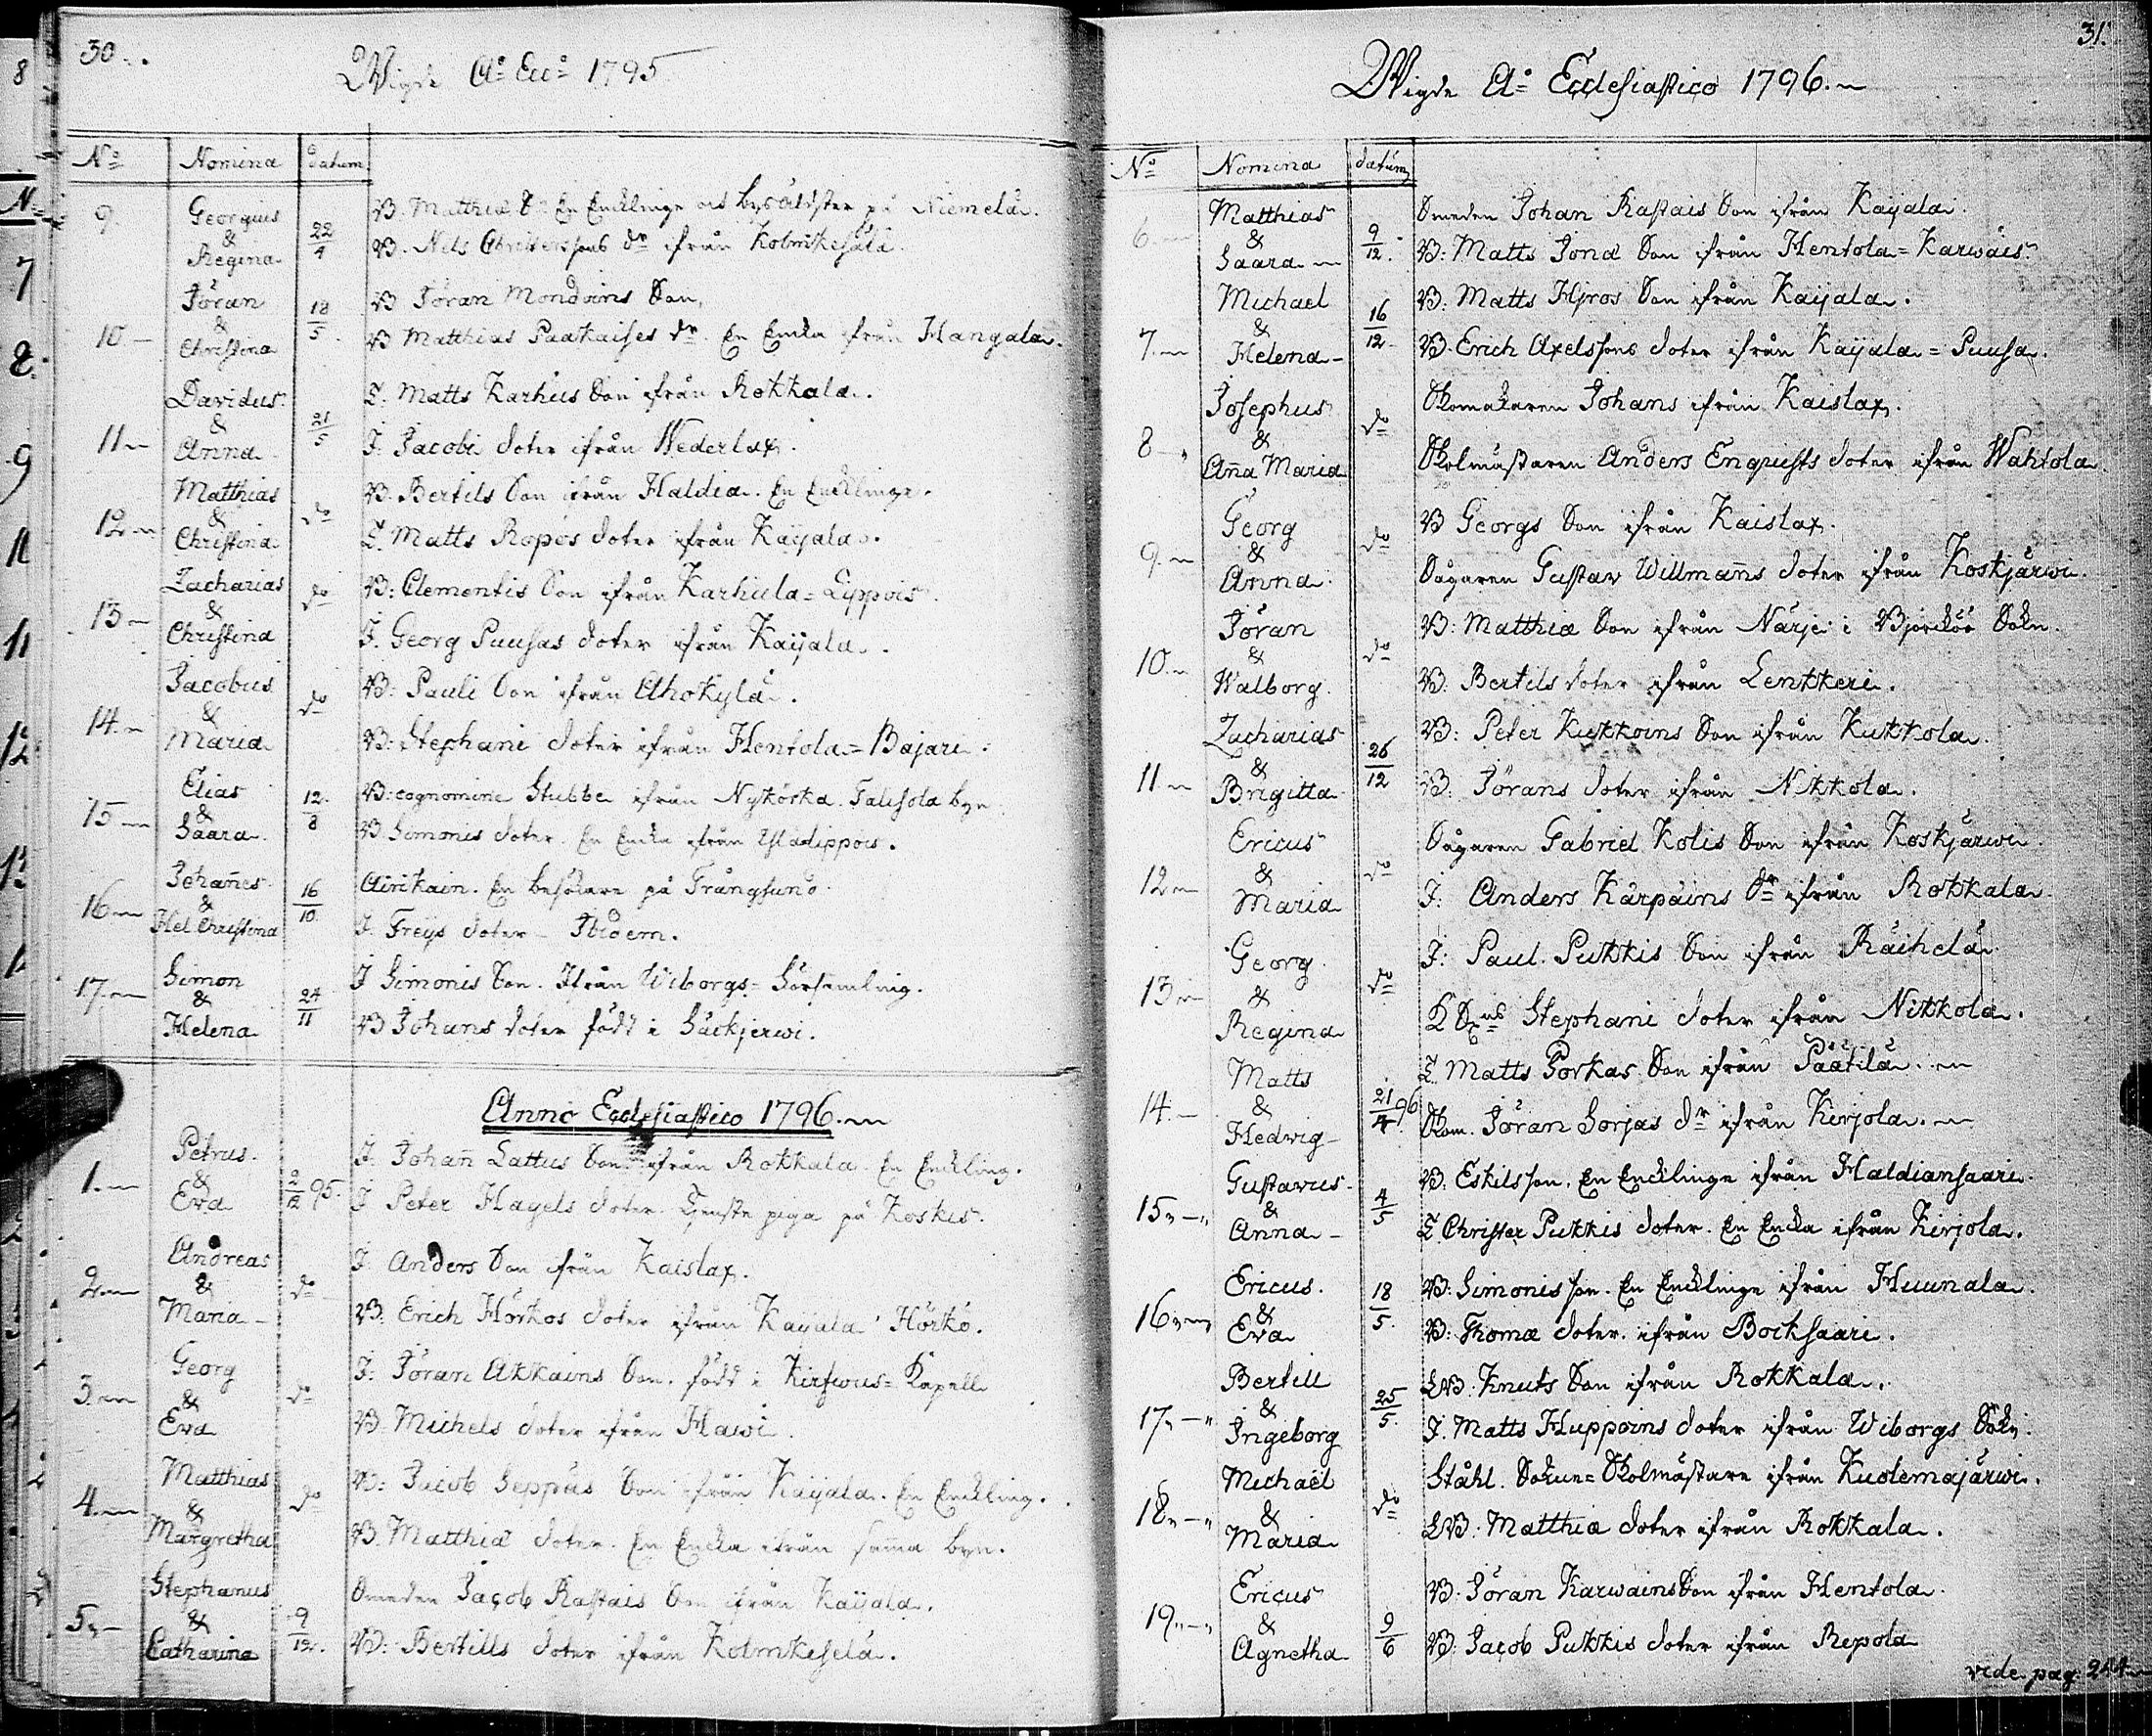 30.
Wigde Ao Ecco 1795
No Nomina datum
9. Georgius & Regina 22/4
B. Matthiæ S. En Encklinge och bys åldster på Niemelä.
B. Nils Christerssons dr ifrån Kolmikesälä.
10 Jöran & Christina 18/5
B Jöran Mondoins Son,
B Matthias Paakaises dr. En Encka ifrån Hangala.
11 Davidus & Anna 21/5
I. Matts Karhus Son ifrån Rokkala.
I. Jacobi doter ifrån Nederlax.
12 Matthias & Christina do
B. Bertils Son ifrån Haldia. En Encklinge.
I. Matts Ropos doter ifrån Kaijala.
13 Zacharias & Christina do
B: Clementis Son ifrån Karhula=Lippois.
I. Georg Puusas doter ifrån Kaijala.
14. Jacobus & Maria do
B: Pauli Son ifrån Ahokylä.
B: Stephani doter ifrån Hentola=Bajari.
15 Elias & Saara 12/8
B: cognomine Stubbe ifrån Nykörka. Falisola byn
B. Simonis doter. En Encka ifrån
16 Johañes & Hel. Christina 16/10
Airikain. En besökare på Trångsund.
I. Freijs doter - Ibidem.
17. Simon & Helena 24/11
I Simonis Son. Ifrån Wiborgs=Församling.
B Johans doter född i Säckjerwi.
Anno Ecclesiastico 1796.
1. Petrus & Eva 2/12 95.
I. Johañ Lattus Son ifrån Rokkala. En Enckling.
I Peter Hagels doter. Tjenste piga på Koskis.
2. Andreas & Maria do
I. Anders Son ifrån Kaislax.
B. Erich Hörkös doter ifrån Kayala Hörkö.
3. Georg & Eva do
I: Jöran Akkains Son. född i Kirfwus=Kapell
B. Michels doter ifrån Hawi.
4. Matthias & Mañgretha do
B: Jacob Seppäs Son ifrån Kaijala. En Enckling.
B. Matthiæ doter. En Encka ifrån sama byn.
5. Stephanus & Catharina 9/12.
Smeden Jacob Rastais Son ifrån Kaijala.
B: Bertills doter ifrån Kolmkeselä.
31.
Wigde Ao Ecclesiastico 1796.
No Nomina datum
6 Matthias & Saara 9/12.
Smeden Johan Rastais Son ifrån Kayala
B: Matts Jonæ Son ifrån Hentola=Karwais.
7. Michael & Helena 16/12
B: Matts Hjros Son ifrån Kaijala.
B. Erich Axelssons doter ifrån Kaijala=Puusa.
8 Josephus & Aña Maria do
Skomakaren Johans ifrån Kaislax.
Skolmästaren Anders Enquists doter ifrån Wahtola
9. Georg & Anna do
B Georgs Son ifrån Kaislax.
Sågaren Gustav Willmañs doter ifrån Koskjärwi.
10. Jöran & Walborg do
B: Matthiæ Son ifrån Närje i Bjorcköö Sokn.
B. Bertils doter ifrån Lenkkeri.
11 Zacharias & Brigitta 26/12
B: Peter Kukkoins Son ifrån Kukkola.
B. Jörans doter ifrån Nikkola.
12 Ericus & Maria do
Sågaren Gabriel Kolis Son ifrån Koskjärwi.
I: Anders Kärpäins dr ifrån Rokkala.
13 Georg & Regina do
I: Paul. Pukkis Son ifrån Räihelä.
Stephani doter ifrån Nikkola.
14. Matts & Hedvig 21/4 96
I Matts Porkas Son ifrån Päätilä.
Skom. Jöran Sorjas dr ifrån Kirjola.
15 Gustavus & Anna 4/5
B. Eskilsson. En Encklinge ifrån Haldiansaari.
I Christer Pukkis doter. En Encka ifrån Kirjola.
16 Ericus & Eva 18/5.
B: Simonis son. En Encklinge ifrån Huunala.
B: Thomæ doter. ifrån Bocksaari.
17 Bertill & Ingeborg 25/5.
LB: Knuts Son ifrån Rokkala.
I. Matts Huppoins doter ifrån Wiborgs Sokn.
18 Michaël & Maria do
Ståhl. Sokne=Skolmästare ifrån Kuolemajärwi.
LB. Matthiæ doter ifrån Rokkala.
19 Ericus & Agnetha 9/6
B. Jöran Karwains Son ifrån Hentola.
B: Jacob Pukkis doter ifrån Repola
vide pag: 244